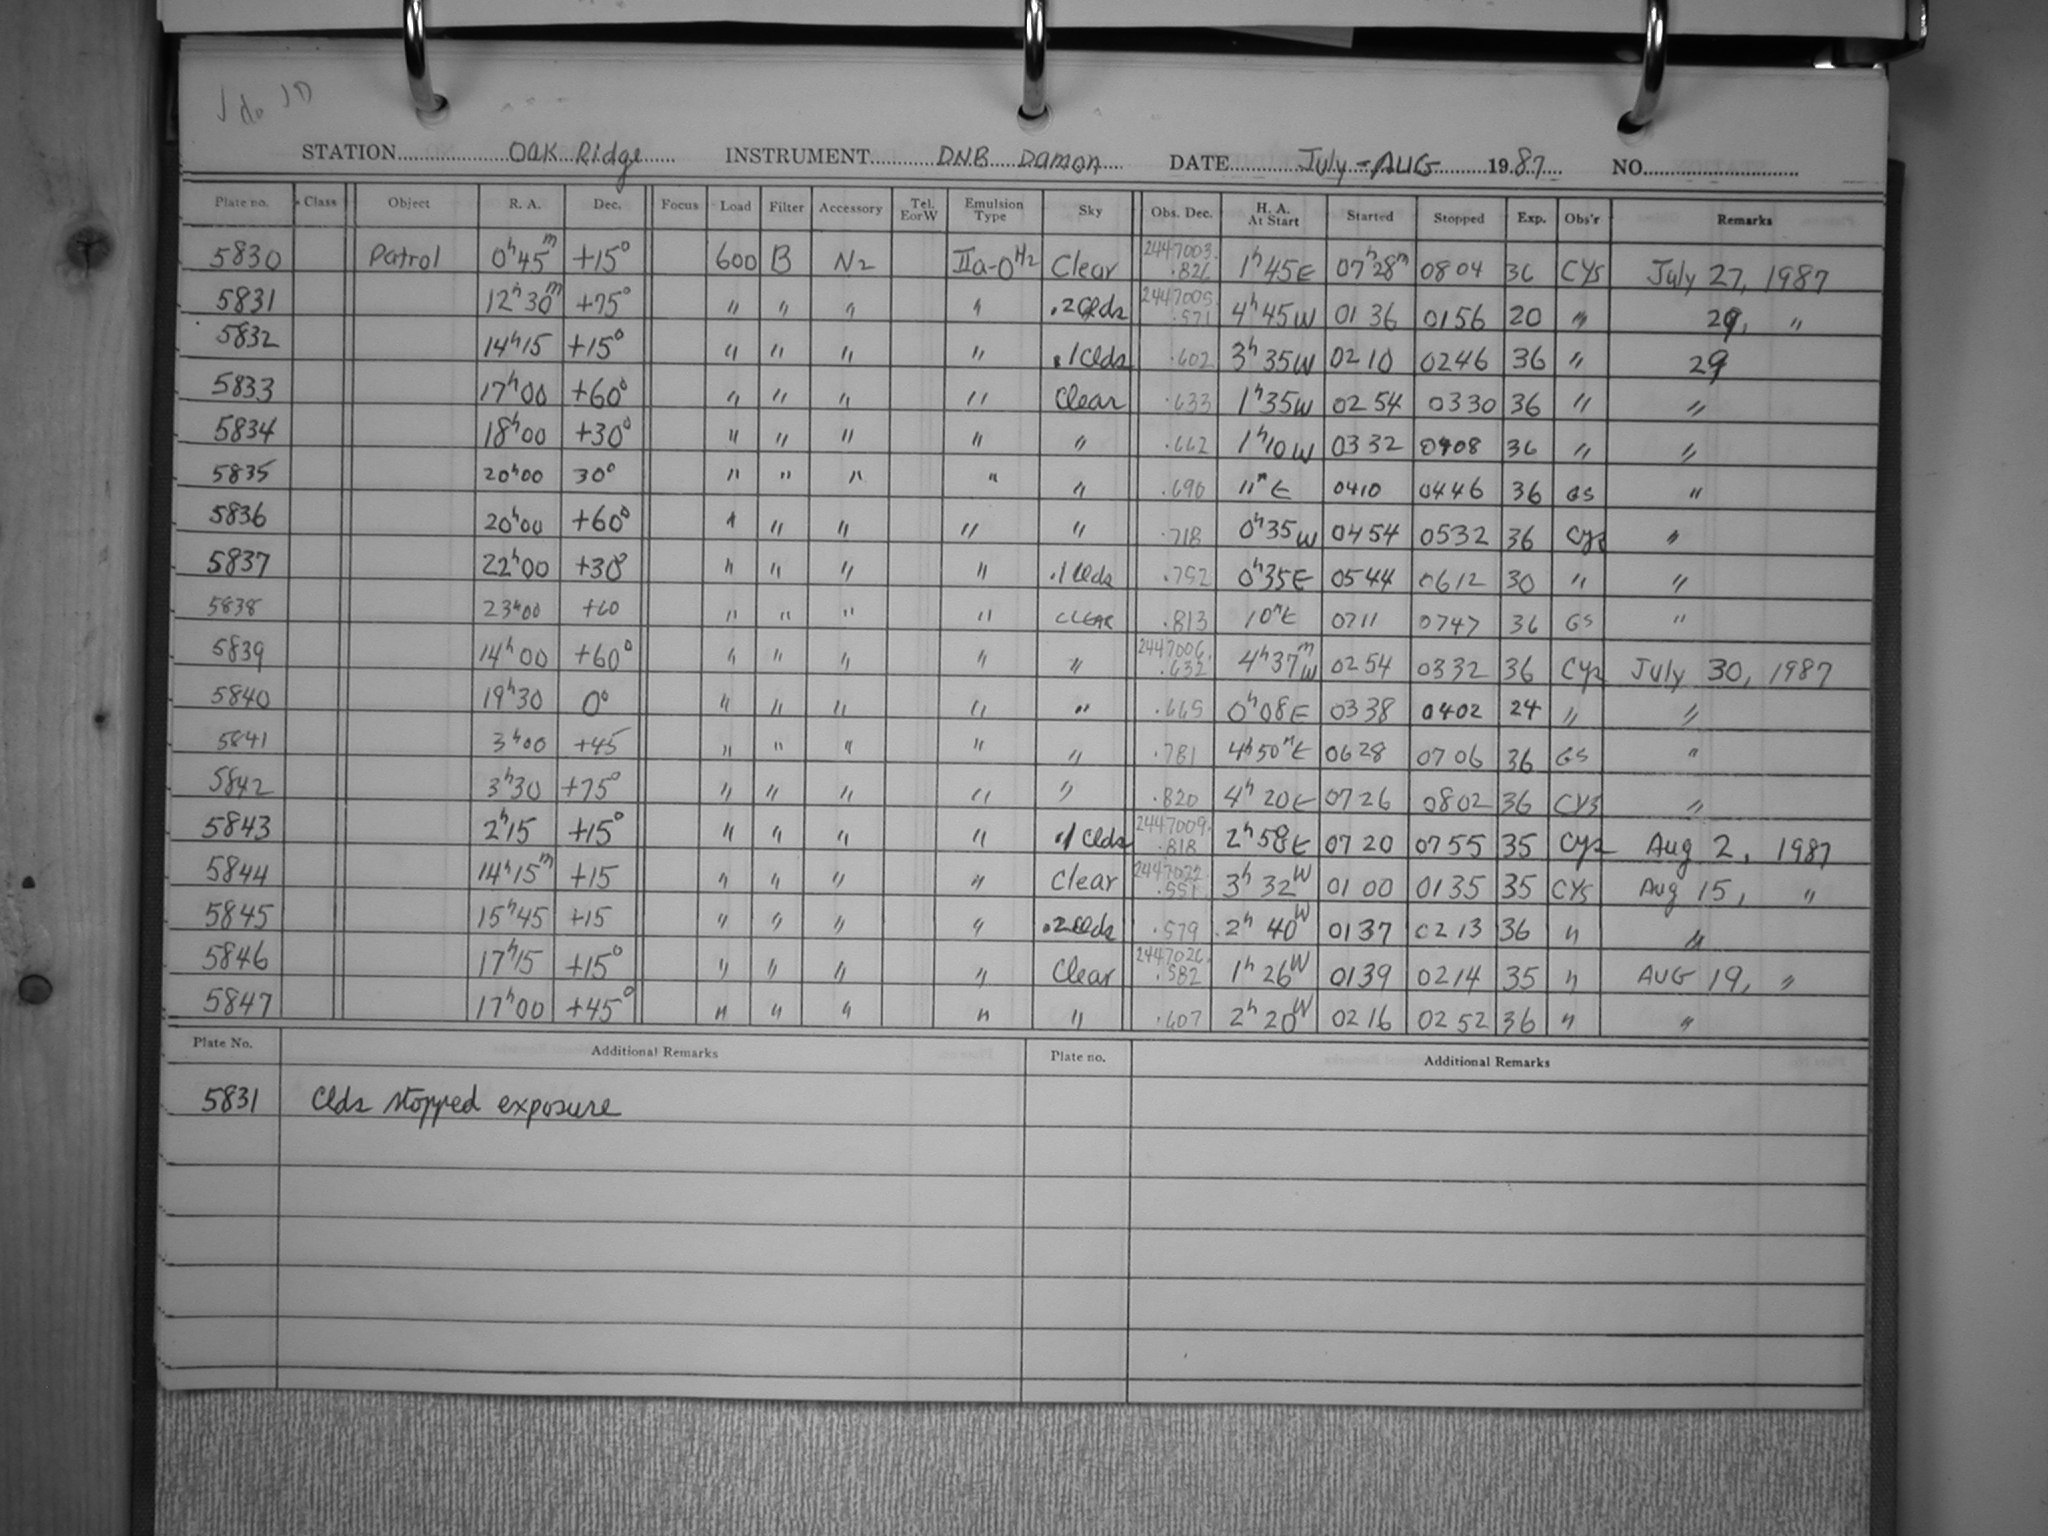 STATION Oak Ridge INSTRUMENT DNB Damon DATE July - AUG 1987 NO.
Plate no. Class Object R. A. Dec. Focus Load Filter Accessory Tel. EorW Emulsion Type Sky Obs. Dec. H. A. At Start Started Stopped Exp. Obs'r Remarks
5830 Patrol 0h45m +15° 600 B N2 IIa-O H2 Clear 2447003.826 1h45E 07h28m 0804 36 CYS July 27, 1987
5831 12h30m +75° " " " " .2 Clds 2447005.571 4h45W 0136 0156 20 " 29, "
5832 14h15 +15° " " " " .1 Clds .602 3h35W 0210 0246 36 " 29
5833 17h00 +60° " " " " Clear .633 1h35W 0254 0330 36 " "
5834 18h00 +30° " " " " " .662 1h10W 0332 0408 36 " "
5835 20h00 30° " " " " " .690 11mE 0410 0446 36 GS "
5836 20h00 +60° " " " " " .718 0h35W 0454 0532 36 Cys "
5837 22h00 +30° " " " " .1 Clds .752 0h35E 0544 0612 30 " "
5838 23h00 +60 " " " " CLEAR .813 10mE 0711 0747 36 GS "
5839 14h00 +60° " " " " " 2447006.632 4h37mW 0254 0332 36 Cys July 30, 1987
5840 19h30 0° " " " " " .665 0h08E 0338 0402 24 " "
5841 3h00 +45 " " " " " .781 4h50mE 0628 0706 36 GS "
5842 3h30 +75° " " " " " .820 4h20E 0726 0802 36 CYS "
5843 2h15 +15° " " " " .1 Clds 2447009.818 2h58E 0720 0755 35 Cys Aug 2, 1987
5844 14h15m +15 " " " " Clear 2447022.551 3h32W 0100 0135 35 CYS Aug 15, "
5845 15h45 +15 " " " " .2 Clds .579 2h40W 0137 0213 36 " "
5846 17h15 +15° " " " " Clear 2447026.582 1h26W 0139 0214 35 " AUG 19, "
5847 17h00 +45° " " " " " .607 2h20W 0216 0252 36 " "
Plate No. Additional Remarks Plate no. Additional Remarks
5831 Clds stopped exposure